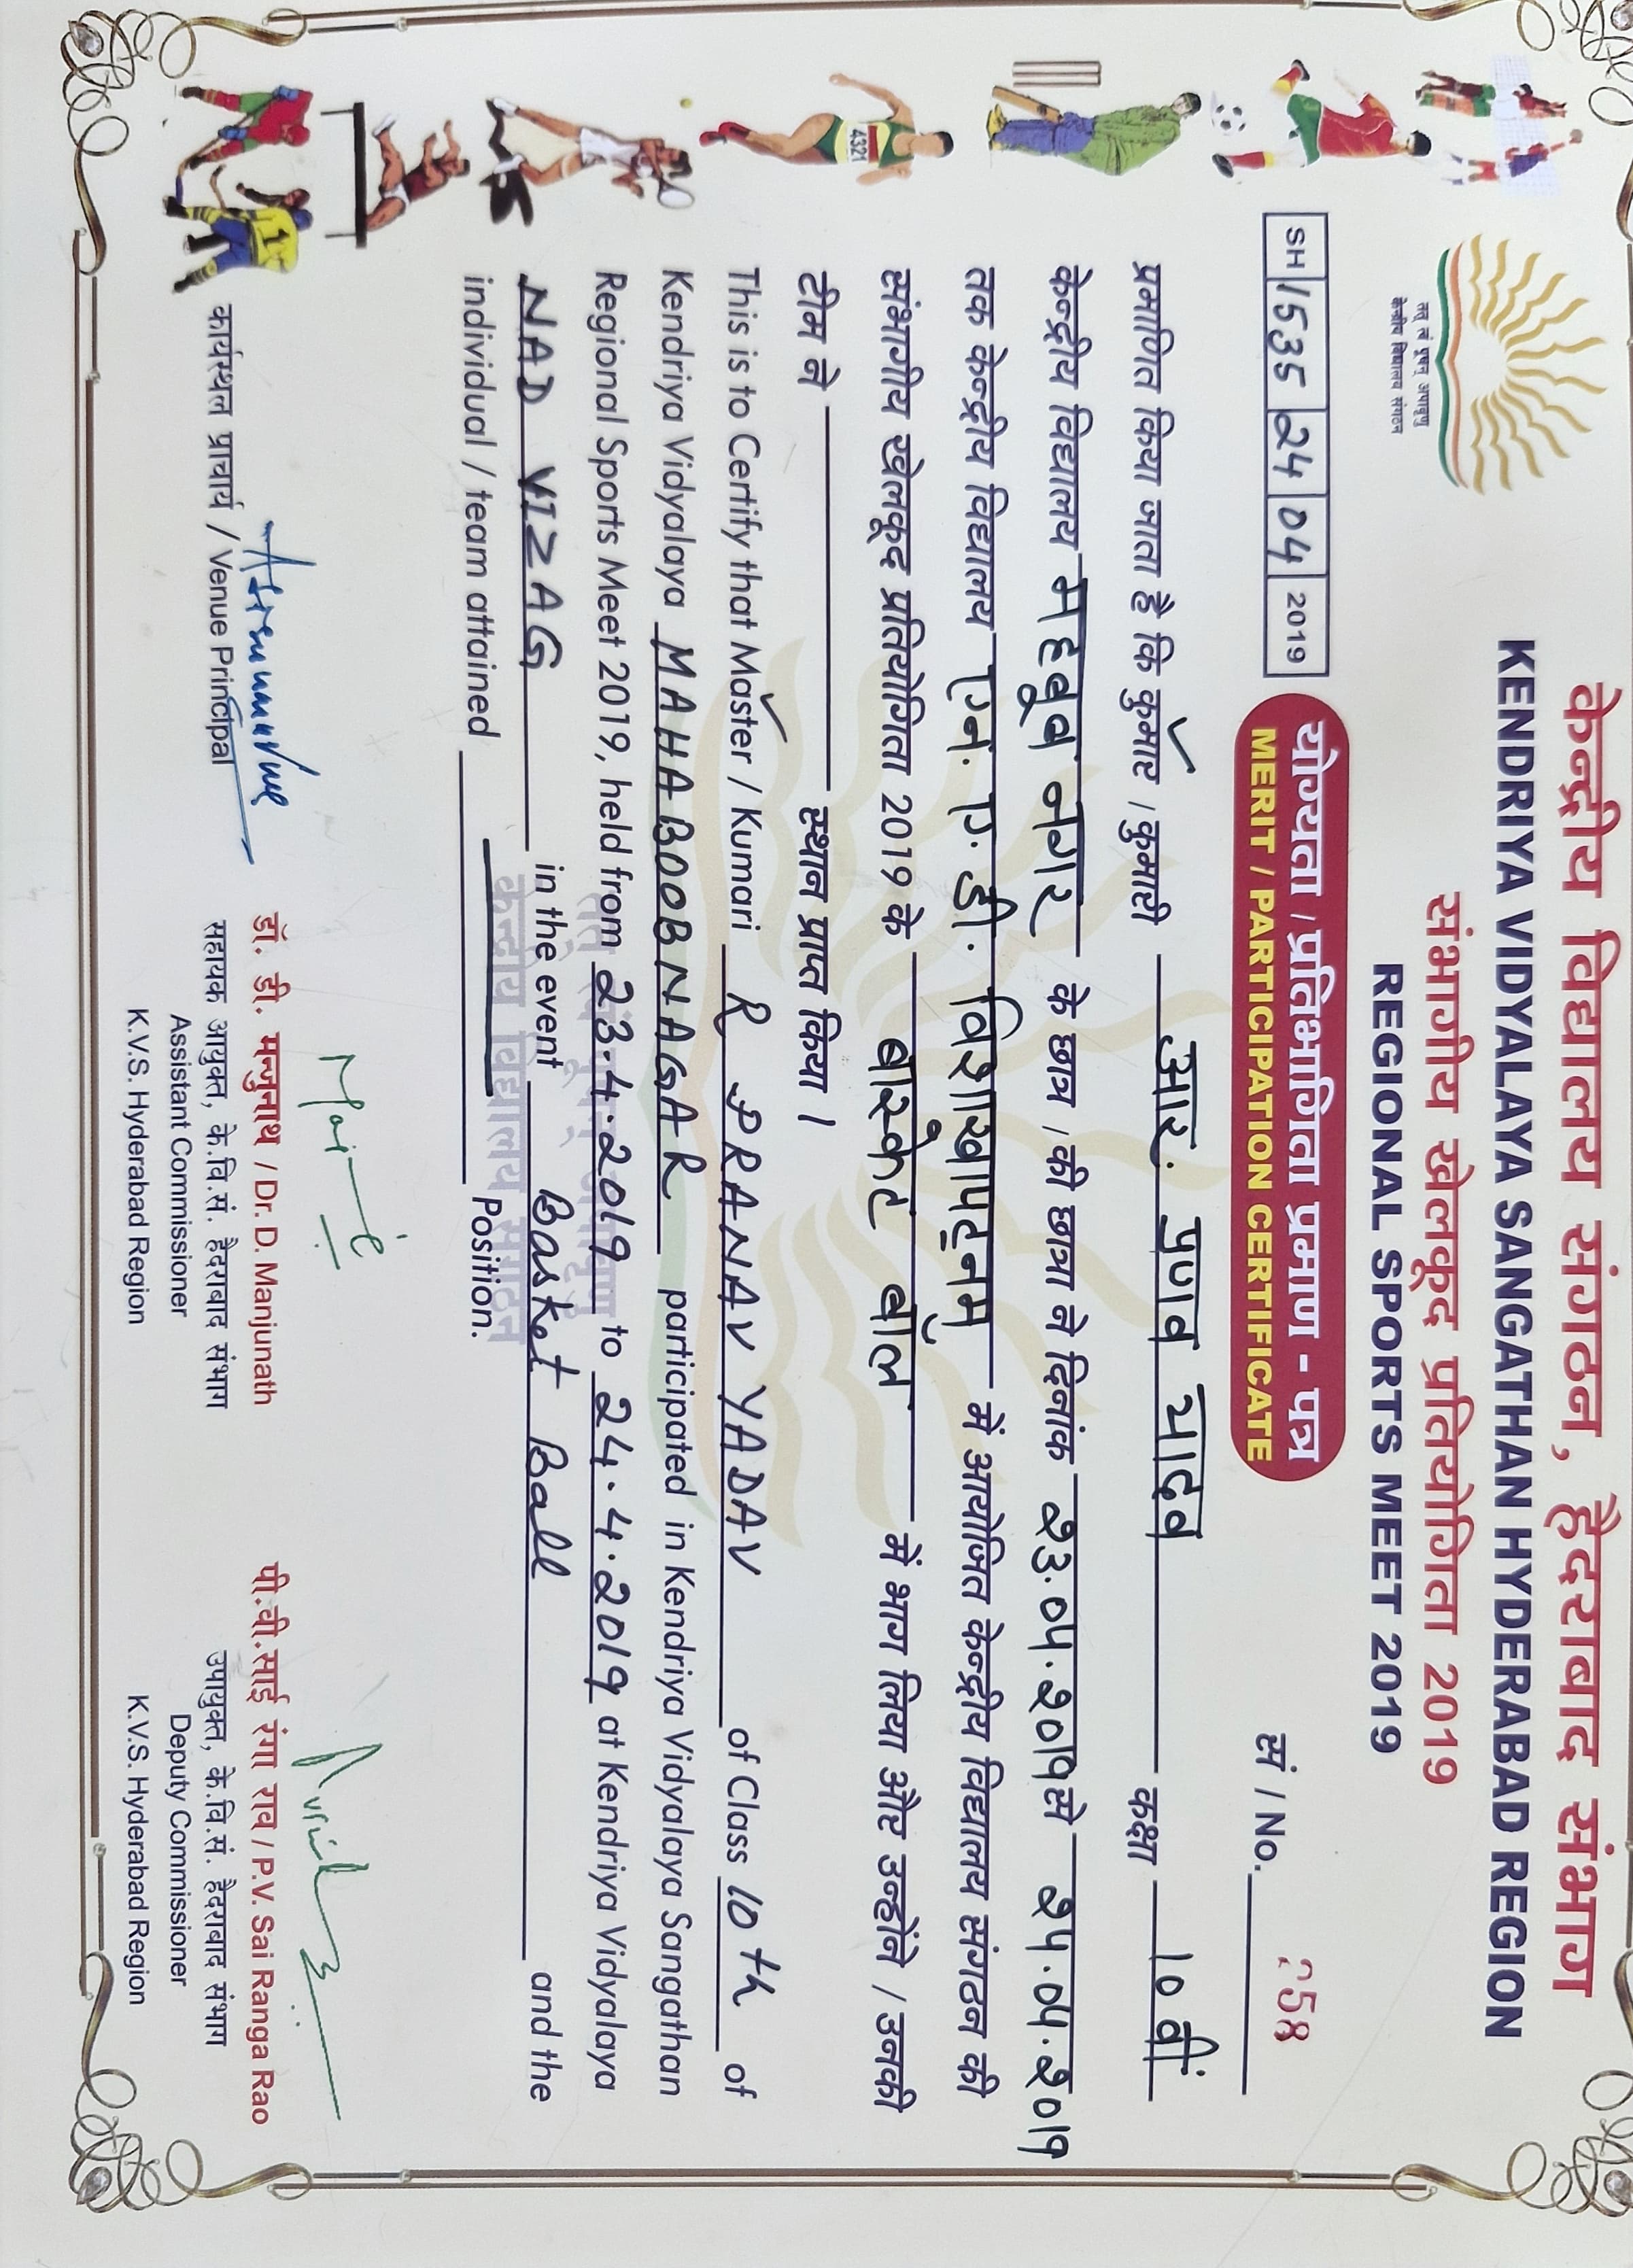 केन्द्रीय विद्यालय संगठन, हैदराबाद संभाग
KENDRIYA VIDYALAYA SANGATHAN HYDERABAD REGION
संभागीय खेलकूद प्रतियोगिता 2019
REGIONAL SPORTS MEET 2019
तत् त्वं पूषन् अपावृणु
केन्द्रीय विद्यालय संगठन
SH 1535 24 04 2019
योग्यता / प्रतिभागिता प्रमाण - पत्र
MERIT / PARTICIPATION CERTIFICATE
सं / No. 258
प्रमाणित किया जाता है कि कुमार / कुमारी आर. प्रणव यादव कक्षा 10 वीं
केन्द्रीय विद्यालय महबूब नगर के छात्र / की छात्रा ने दिनांक २३.०४.२०१९ से २४.०४.२०१९
तक केन्द्रीय विद्यालय एन. ए. डी. विशाखापट्नम में आयोजित केन्द्रीय विद्यालय संगठन की
संभागीय खेलकूद प्रतियोगिता 2019 के बास्केट बॉल में भाग लिया और उन्होंने / उनकी
टीम ने स्थान प्राप्त किया ।
This is to Certify that Master / Kumari R PRANAV YADAV of Class 10th of
Kendriya Vidyalaya MAHABOOBNAGAR participated in Kendriya Vidyalaya Sangathan
Regional Sports Meet 2019, held from 23.4.2019 to 24.4.2019 at Kendriya Vidyalaya
NAD VIZAG in the event Basket Ball and the
individual / team attained Position.
तत् त्वं पूषन् अपावृणु
केन्द्रीय विद्यालय संगठन
4321
1
कार्यस्थल प्राचार्य / Venue Principal
डॉ. डी. मन्जुनाथ / Dr. D. Manjunath
सहायक आयुक्त, के.वि.सं. हैदराबाद संभाग
Assistant Commissioner
K.V.S. Hyderabad Region
पी.वी.साई रंगा राव / P.V. Sai Ranga Rao
उपायुक्त, के.वि.सं. हैदराबाद संभाग
Deputy Commissioner
K.V.S. Hyderabad Region